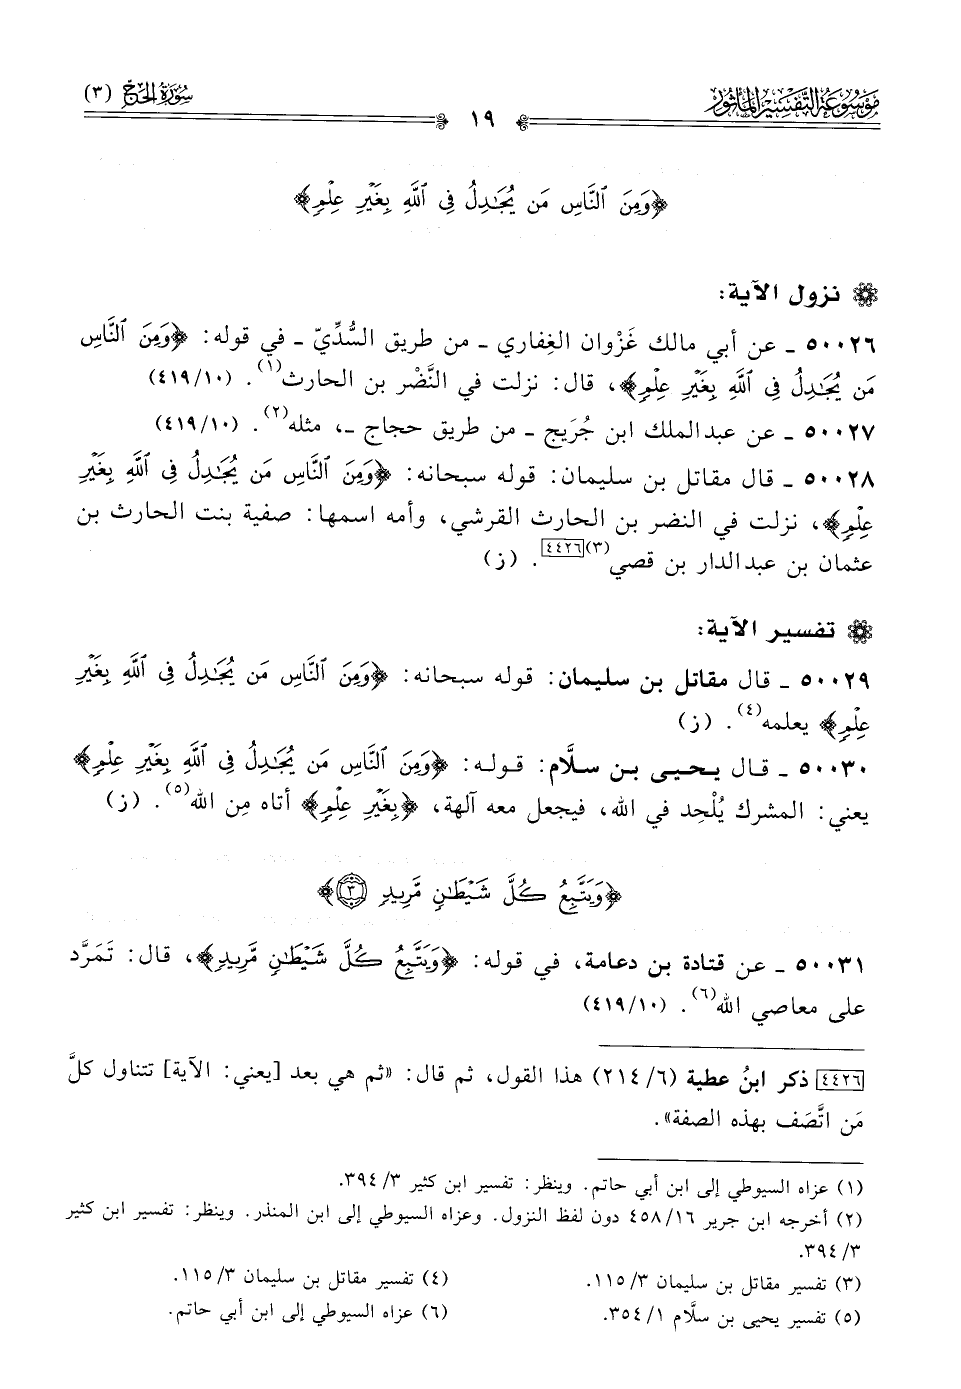 مَوْسُوعَة التَّفْسِير المَأْثُور
١٩
سُورَة الحَجّ (٣)
﴿وَمِنَ ٱلنَّاسِ مَن يُجَٰدِلُ فِى ٱللَّهِ بِغَيْرِ عِلْمٍ﴾
نزول الآية:
٥٠٠٢٦ ـ عن أبي مالك غَزْوان الغِفاري ـ من طريق السُّدِّيّ ـ في قوله: ﴿وَمِنَ ٱلنَّاسِ
مَن يُجَٰدِلُ فِى ٱللَّهِ بِغَيْرِ عِلْمٍ﴾، قال: نزلت في النَّضْر بن الحارث(١). (٤١٩/١٠)
٥٠٠٢٧ ـ عن عبدالملك ابن جُرَيج ـ من طريق حجاج ـ، مثله(٢). (٤١٩/١٠)
٥٠٠٢٨ ـ قال مقاتل بن سليمان: قوله سبحانه: ﴿وَمِنَ ٱلنَّاسِ مَن يُجَٰدِلُ فِى ٱللَّهِ بِغَيْرِ
عِلْمٍ﴾، نزلت في النضر بن الحارث القرشي، وأمه اسمها: صفية بنت الحارث بن
عثمان بن عبدالدار بن قصي(٣)[٤٤٢٦]. (ز)
تفسير الآية:
٥٠٠٢٩ ـ قال مقاتل بن سليمان: قوله سبحانه: ﴿وَمِنَ ٱلنَّاسِ مَن يُجَٰدِلُ فِى ٱللَّهِ بِغَيْرِ
عِلْمٍ﴾ يعلمه(٤). (ز)
٥٠٠٣٠ ـ قال يحيى بن سلَّام: قوله: ﴿وَمِنَ ٱلنَّاسِ مَن يُجَٰدِلُ فِى ٱللَّهِ بِغَيْرِ عِلْمٍ﴾
يعني: المشرك يُلْحِد في الله، فيجعل معه آلهة، ﴿بِغَيْرِ عِلْمٍ﴾ أتاه مِن الله(٥). (ز)
﴿وَيَتَّبِعُ كُلَّ شَيْطَٰنٍ مَّرِيدٍ ٣﴾
٥٠٠٣١ ـ عن قتادة بن دعامة، في قوله: ﴿وَيَتَّبِعُ كُلَّ شَيْطَٰنٍ مَّرِيدٍ﴾، قال: تَمَرَّد
على معاصي الله(٦). (٤١٩/١٠)
[٤٤٢٦] ذكر ابنُ عطية (٢١٤/٦) هذا القول، ثم قال: «ثم هي بعد [يعني: الآية] تتناول كلَّ
مَن اتَّصَف بهذه الصفة».
(١) عزاه السيوطي إلى ابن أبي حاتم. وينظر: تفسير ابن كثير ٣٩٤/٣.
(٢) أخرجه ابن جرير ٤٥٨/١٦ دون لفظ النزول. وعزاه السيوطي إلى ابن المنذر. وينظر: تفسير ابن كثير
٣٩٤/٣.
(٣) تفسير مقاتل بن سليمان ١١٥/٣.
(٤) تفسير مقاتل بن سليمان ١١٥/٣.
(٥) تفسير يحيى بن سلَّام ٣٥٤/١.
(٦) عزاه السيوطي إلى ابن أبي حاتم.